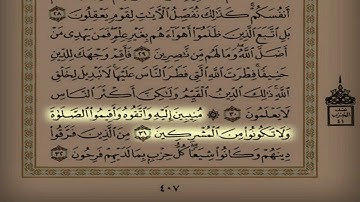 أَنفُسَكُمْ كَذَٰلِكَ نُفَصِّلُ الْآيَاتِ لِقَوْمٍ يَعْقِلُونَ ٢٨
بَلِ اتَّبَعَ الَّذِينَ ظَلَمُوا أَهْوَاءَهُم بِغَيْرِ عِلْمٍ فَمَن يَهْدِي مَنْ
أَضَلَّ اللَّهُ وَمَا لَهُم مِّن نَّاصِرِينَ ٢٩ فَأَقِمْ وَجْهَكَ لِلدِّينِ
حَنِيفًا فِطْرَتَ اللَّهِ الَّتِي فَطَرَ النَّاسَ عَلَيْهَا لَا تَبْدِيلَ لِخَلْقِ
اللَّهِ ذَٰلِكَ الدِّينُ الْقَيِّمُ وَلَٰكِنَّ أَكْثَرَ النَّاسِ
لَا يَعْلَمُونَ ٣٠ ۞ مُنِيبِينَ إِلَيْهِ وَاتَّقُوهُ وَأَقِيمُوا الصَّلَوٰةَ
وَلَا تَكُونُوا مِنَ الْمُشْرِكِينَ ٣١ مِنَ الَّذِينَ فَرَّقُوا
دِينَهُمْ وَكَانُوا شِيَعًا كُلُّ حِزْبٍ بِمَا لَدَيْهِمْ فَرِحُونَ ٣٢
الحزب
٤١
٤٠٧